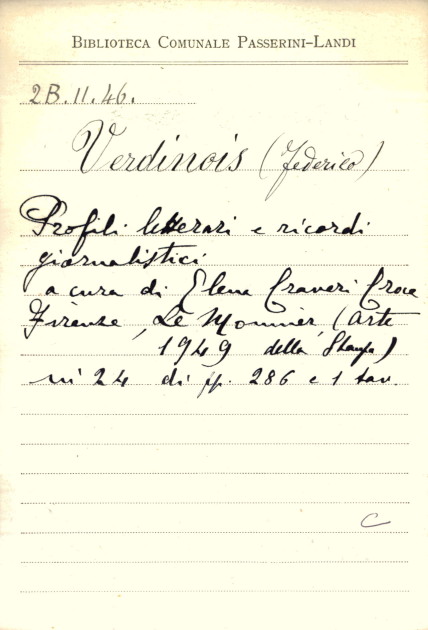 BIBLIOTECA COMUNALE PASSERINI-LANDI
2B.II.46.
Verdinois (Federico)
Profili letterari e ricordi
giornalistici
a cura di Elena Craveri Croce
Firenze, Le Monnier, (Arte
1949 della Stampa)
in 24 di pp. 286 e 1 tav.
C